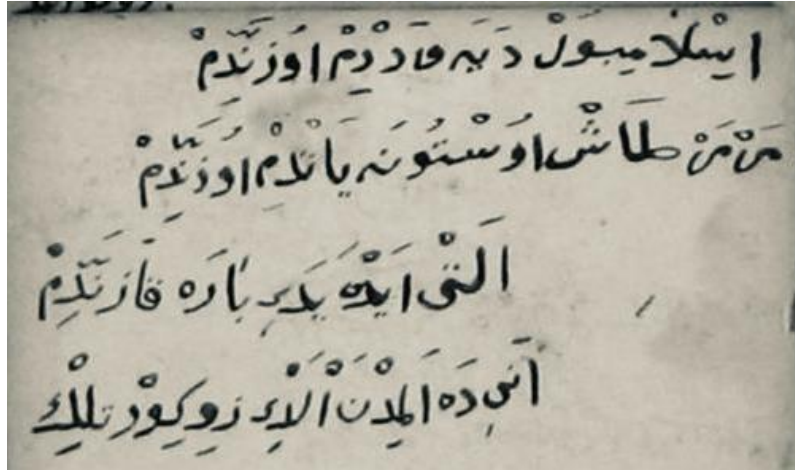 ايسْلامبوَلْ دَيَه قادْدِمْ اوُزَنَّدِمْ
مَرْمَرْ طَاشْ اوُسْتُونَه يَاتْدِمْ اوُزَنَّدِمْ
اَلتْى اَيْدَه يَدِى پَارَه قَازَنَّدِمْ
اَنِى دَه اَلِمْدَنْ اَلْدِى زوكوُرْتلِكْ